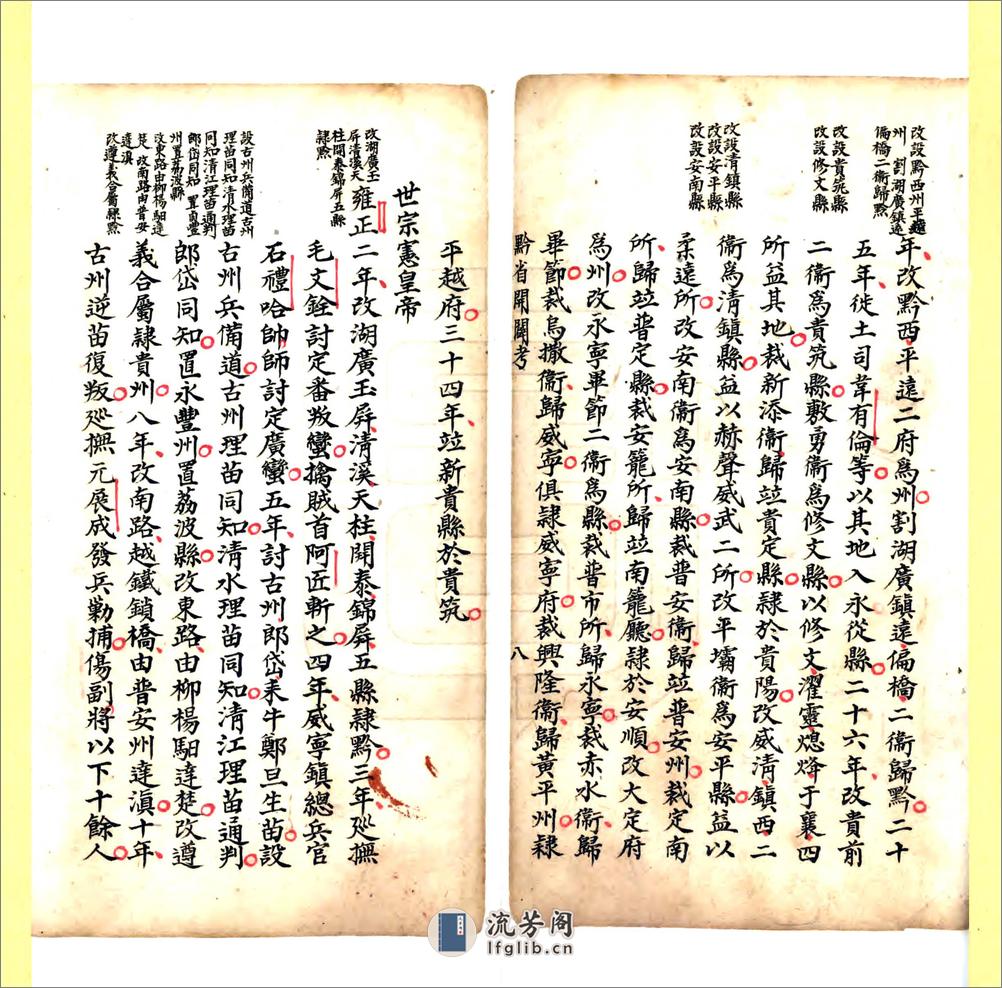 改設黔西州平越
州 割湖廣鎮遠
偏橋二衞歸黔
改設貴筑縣
改設修文縣
改設清鎮縣
改設安平縣
改設安南縣
年改黔西平遠二府爲州割湖廣鎮遠偏橋二衞歸黔二十
五年徙土司韋有倫等以其地入永從縣二十六年改貴前
二衞爲貴筑縣敷勇衞爲修文縣以修文濯靈熄烽于襄四
所益其地裁新添衞歸竝貴定縣隸於貴陽改威清鎮西二
衞爲清鎮縣益以赫聲威武二所改平壩衞爲安平縣益以
柔遠所改安南衞爲安南縣裁普安衞歸竝普安州裁定南
所歸竝普定縣裁安籠所歸竝南籠廳隸於安順改大定府
爲州改永寧畢節二衞爲縣裁普市所歸永寧裁赤水衞歸
畢節裁烏撒衞歸威寧俱隸威寧府裁興隆衞歸黃平州隸
黔省開闢考 八
平越府三十四年竝新貴縣於貴筑
世宗憲皇帝
改湖廣玉
屏清溪天
柱開泰錦屏五縣
隸黔
雍正二年改湖廣玉屏清溪天柱開泰錦屏五縣隸黔三年廵撫
毛文銓討定番叛蠻擒賊首阿近斬之四年威寧鎮總兵官
石禮哈帥師討定廣蠻五年討古州郎岱耒牛鄭旦生苗設
古州兵備道古州理苗同知清水理苗同知清江理苗通判
郎岱同知置永豐州置荔波縣改東路由柳楊馹達楚改遵
義合屬隸貴州八年改南路越鐵鎖橋由普安州達滇十年
古州逆苗復叛廵撫元展成發兵勦捕傷副將以下十餘人
設古州兵備道古州
理苗同知清水理苗
同知清江理苗通判
郎岱同知 置永豐
州置荔波縣
改東路由柳楊馹達
楚 改南路由普安
達滇
改遵義合屬隸黔
流芳阁
lfglib.cn